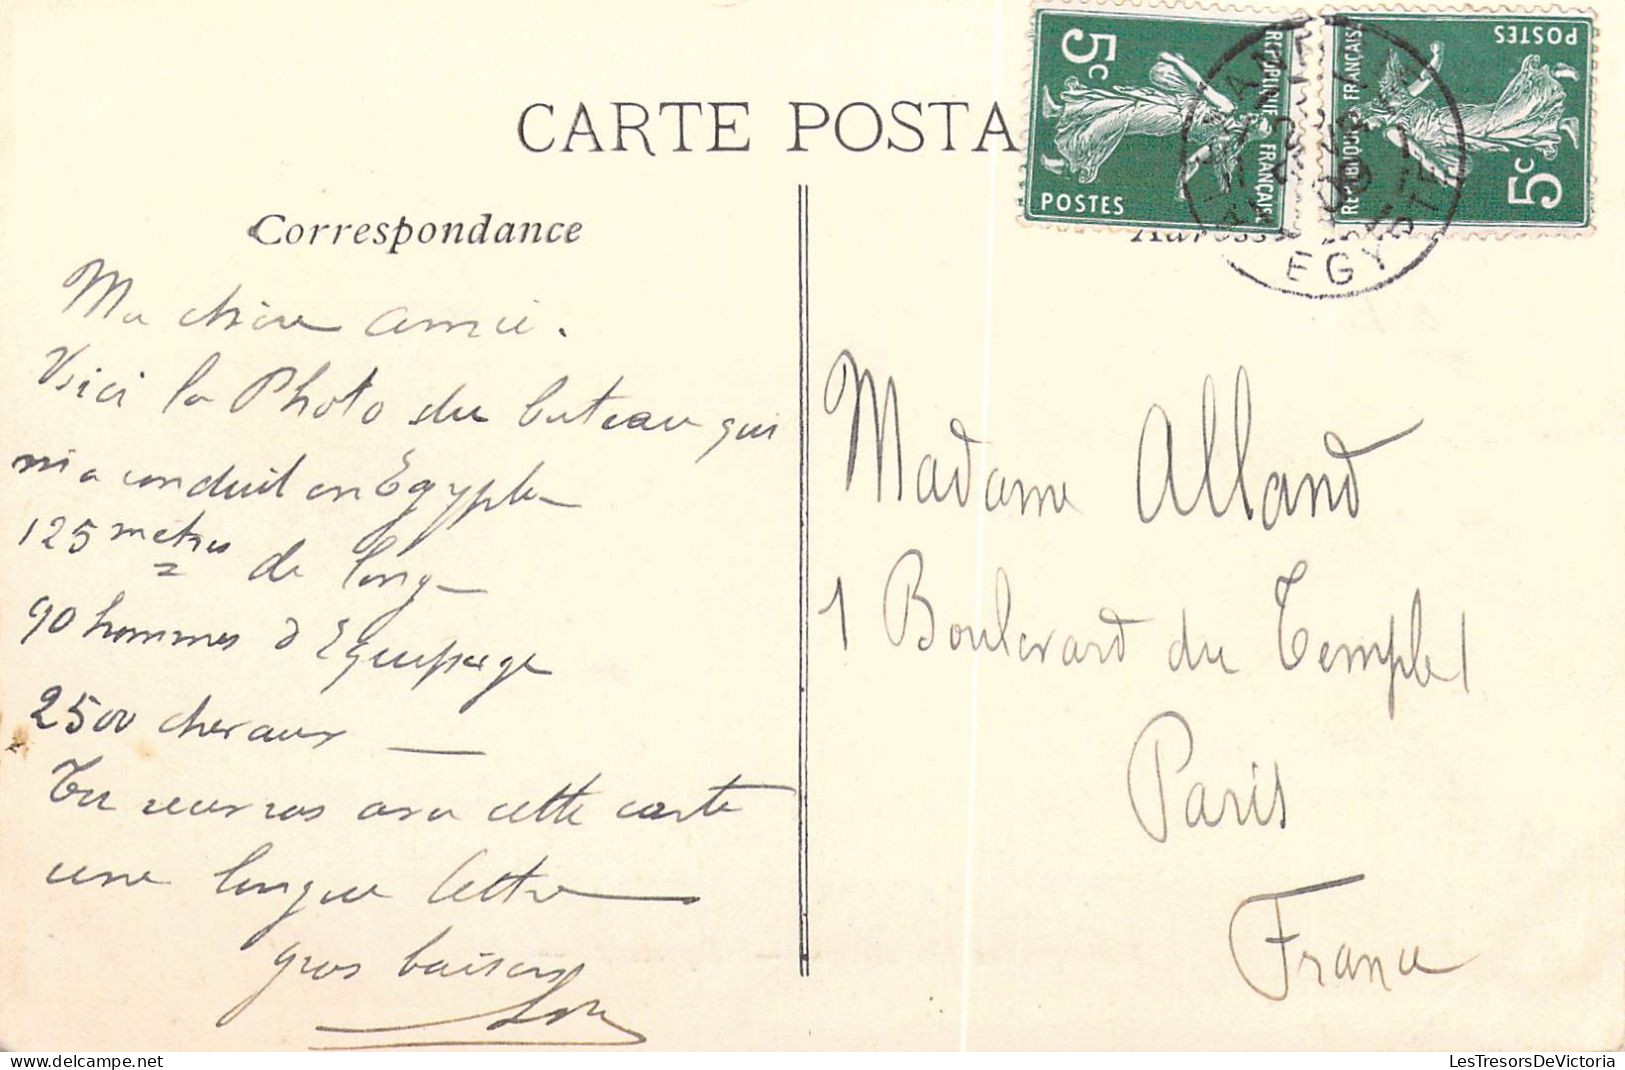 CARTE POSTA
Correspondance
Ma chère amie.
Voici la Photo du bateau qui
m'a conduit en Egypte
125 mètres de long
90 hommes d'Equipage
2500 chevaux
Tu recevras avec cette carte
une longue lettre
gros baisers
5c
REPUBLIQUE FRANÇAISE
POSTES
5c
REPUBLIQUE FRANÇAISE
POSTES
EGYPTE
Adresse
Madame Alland
1 Boulevard du Temple 1
Paris
France
www.delcampe.net
LesTresorsDeVictoria